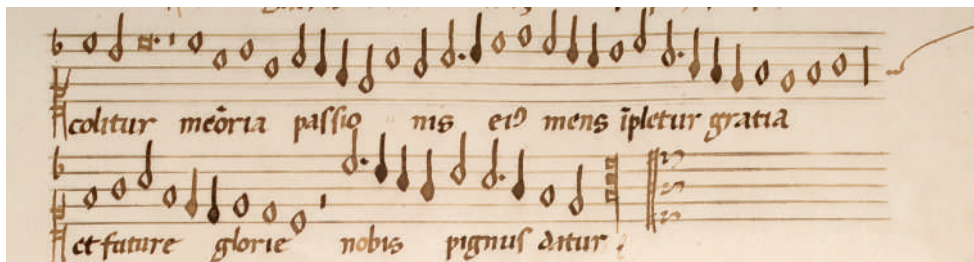 colitur meõria passio nis eiꝰ mens ĩpletur gratia
et future glorie nobis pignus datur